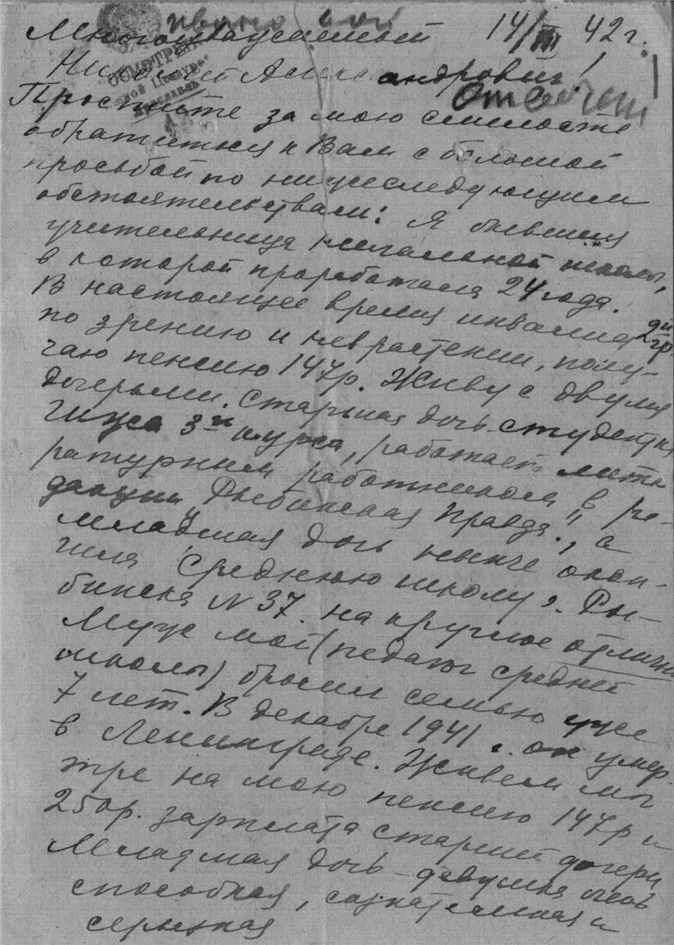 Многоуважаемый 14/III 42 г.
Николай Александрович!
ОСМОТРЕНО
Военной Цензурой
Ярославль
Отвечен
Простите за мою смелость
обратиться к Вам с большой
просьбой по нижеследующим
обстоятельствам: Я бывшая
учительница начальной школы,
в которой проработала 24 года.
В настоящее время инвалид 2й гр.
по зрению и неврастении, полу-
чаю пенсию 147 р. Живу с двумя
дочерьми. Старшая дочь студентка
3го курса, работает лите-
ратурным работником в ре-
дакции "Рыбинская Правда", а
младшая дочь нынче окон-
чила среднюю школу г. Ры-
бинска N 37. на круглое отлично
Муж мой (педагог средней
школы) бросил семью уже
7 лет. В декабре 1941 г. он умер
в Ленинграде. Живем мы
трое на мою пенсию 147 р и
250 р. зарплата старшей дочери
Младшая дочь - девушка очень
способная, сознательная и
серьезная